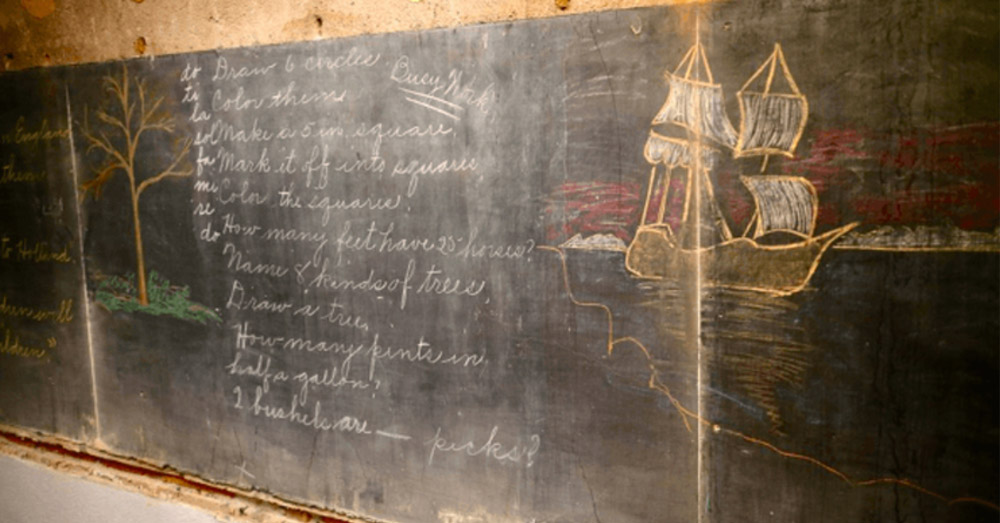 England
them
to Holland
will
do
ti
la
sol
fa
mi
re
do
Busy Work
Draw 6 circles
Color them
Make a 5 in. square.
Mark it off into squares
Color the squares.
How many feet have 25 horses?
Name 8 kinds of trees.
Draw a tree.
How many pints in
half a gallon?
2 bushels are — pecks?